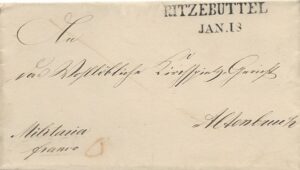 RITZEBÜTTEL
JAN. 18
An
das Wohllöbliche Kirchspiels Gericht
Altenbruch
Militaria
franco